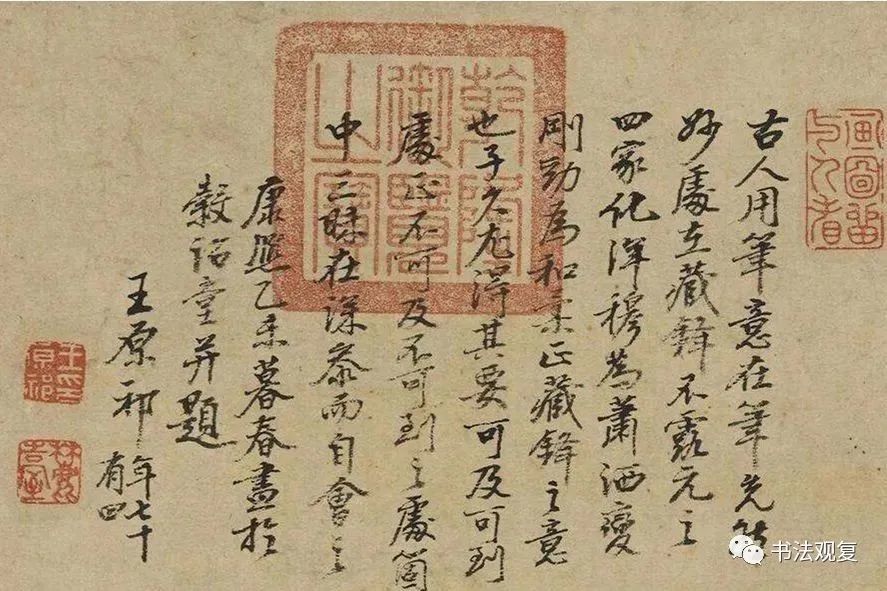 古人用筆意在筆先然
妙處在藏鋒不露元之
四家化渾穆為蕭洒變
剛勁為和柔正藏鋒之意
也子久尤得其要可及可到
處正不可及不可到之處箇
中三昧在深參而自會之
康熙乙未暮春畫於
穀詒堂并題
王原祁年七十
有四
乾隆
御覽
之寶
畫圖留
與人看
王原
祁印
书法观复